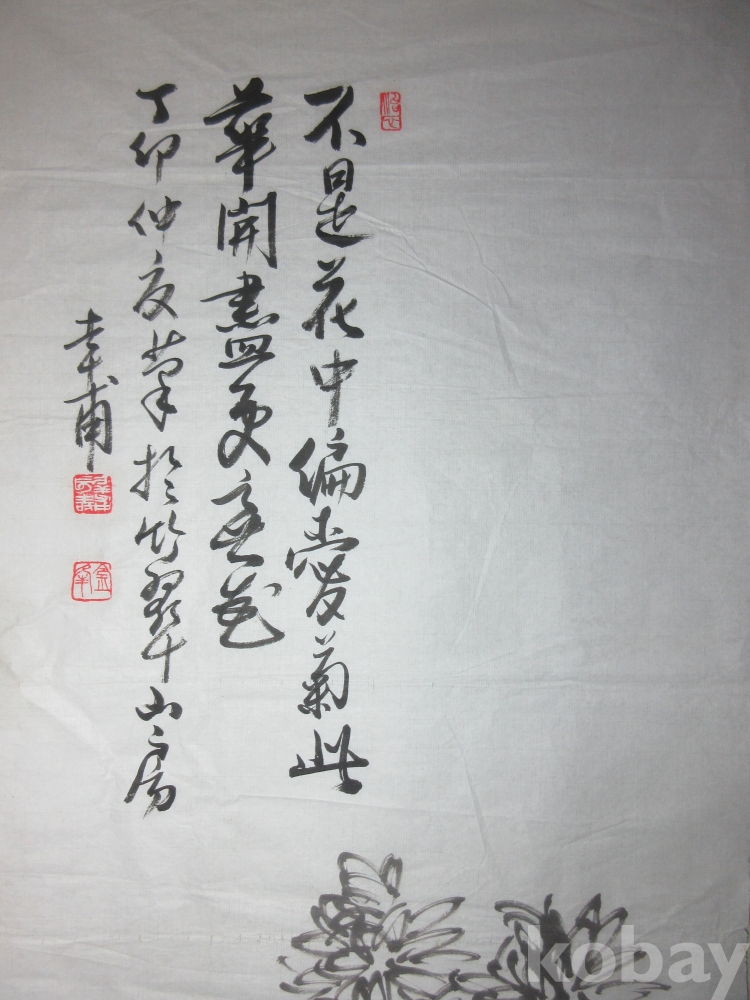 不是花中偏愛菊此
華開盡更無花
丁卯仲夏筆於竹翠山房
幸甫
kobay